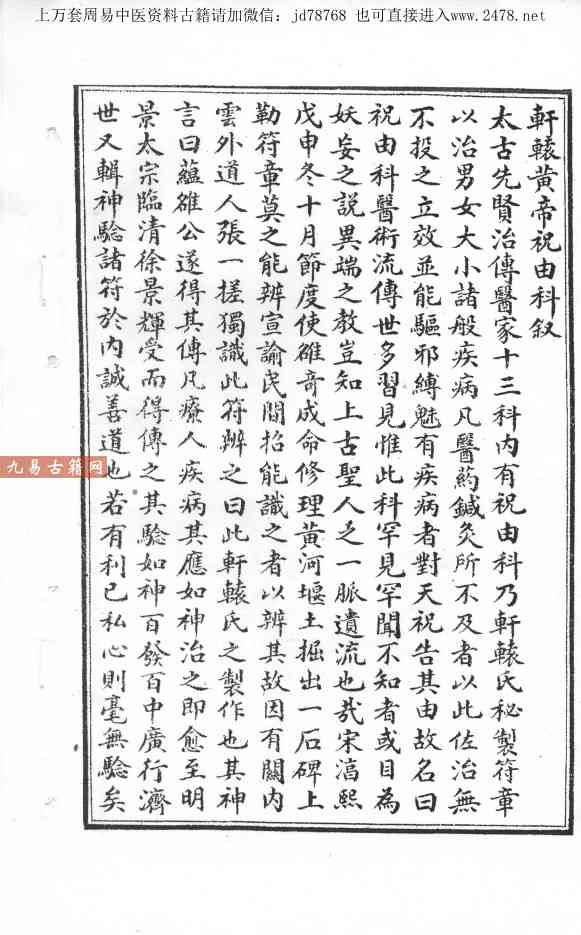 上万套周易中医资料古籍请加微信：jd78768 也可直接进入www.2478.net
軒轅黃帝祝由科叙
太古先賢治傳醫家十三科內有祝由科乃軒轅氏秘製符章
以治男女大小諸般疾病凡醫药鍼灸所不及者以此佐治無
不投之立效並能驅邪縛魅有疾病者對天祝告其由故名曰
祝由科醫術流傳世多習見惟此科罕見罕聞不知者或目為
妖妄之説異端之教豈知上古聖人之一脈遺流也哉宋淳熙
戊申冬十月節度使雒奇成命修理黃河堰土掘出一石碑上
勒符章莫之能辨宣諭民間招能識之者以辨其故因有關內
雲外道人張一搓獨識此符辨之曰此軒轅氏之製作也其神
言曰蘊雒公遂得其傳凡療人疾病其應如神治之即愈至明
景太宗臨清徐景輝受而得傳之其驗如神百發百中廣行濟
世又輯神驗諸符於內誠善道也若有利已私心則毫無驗矣
九易古籍网